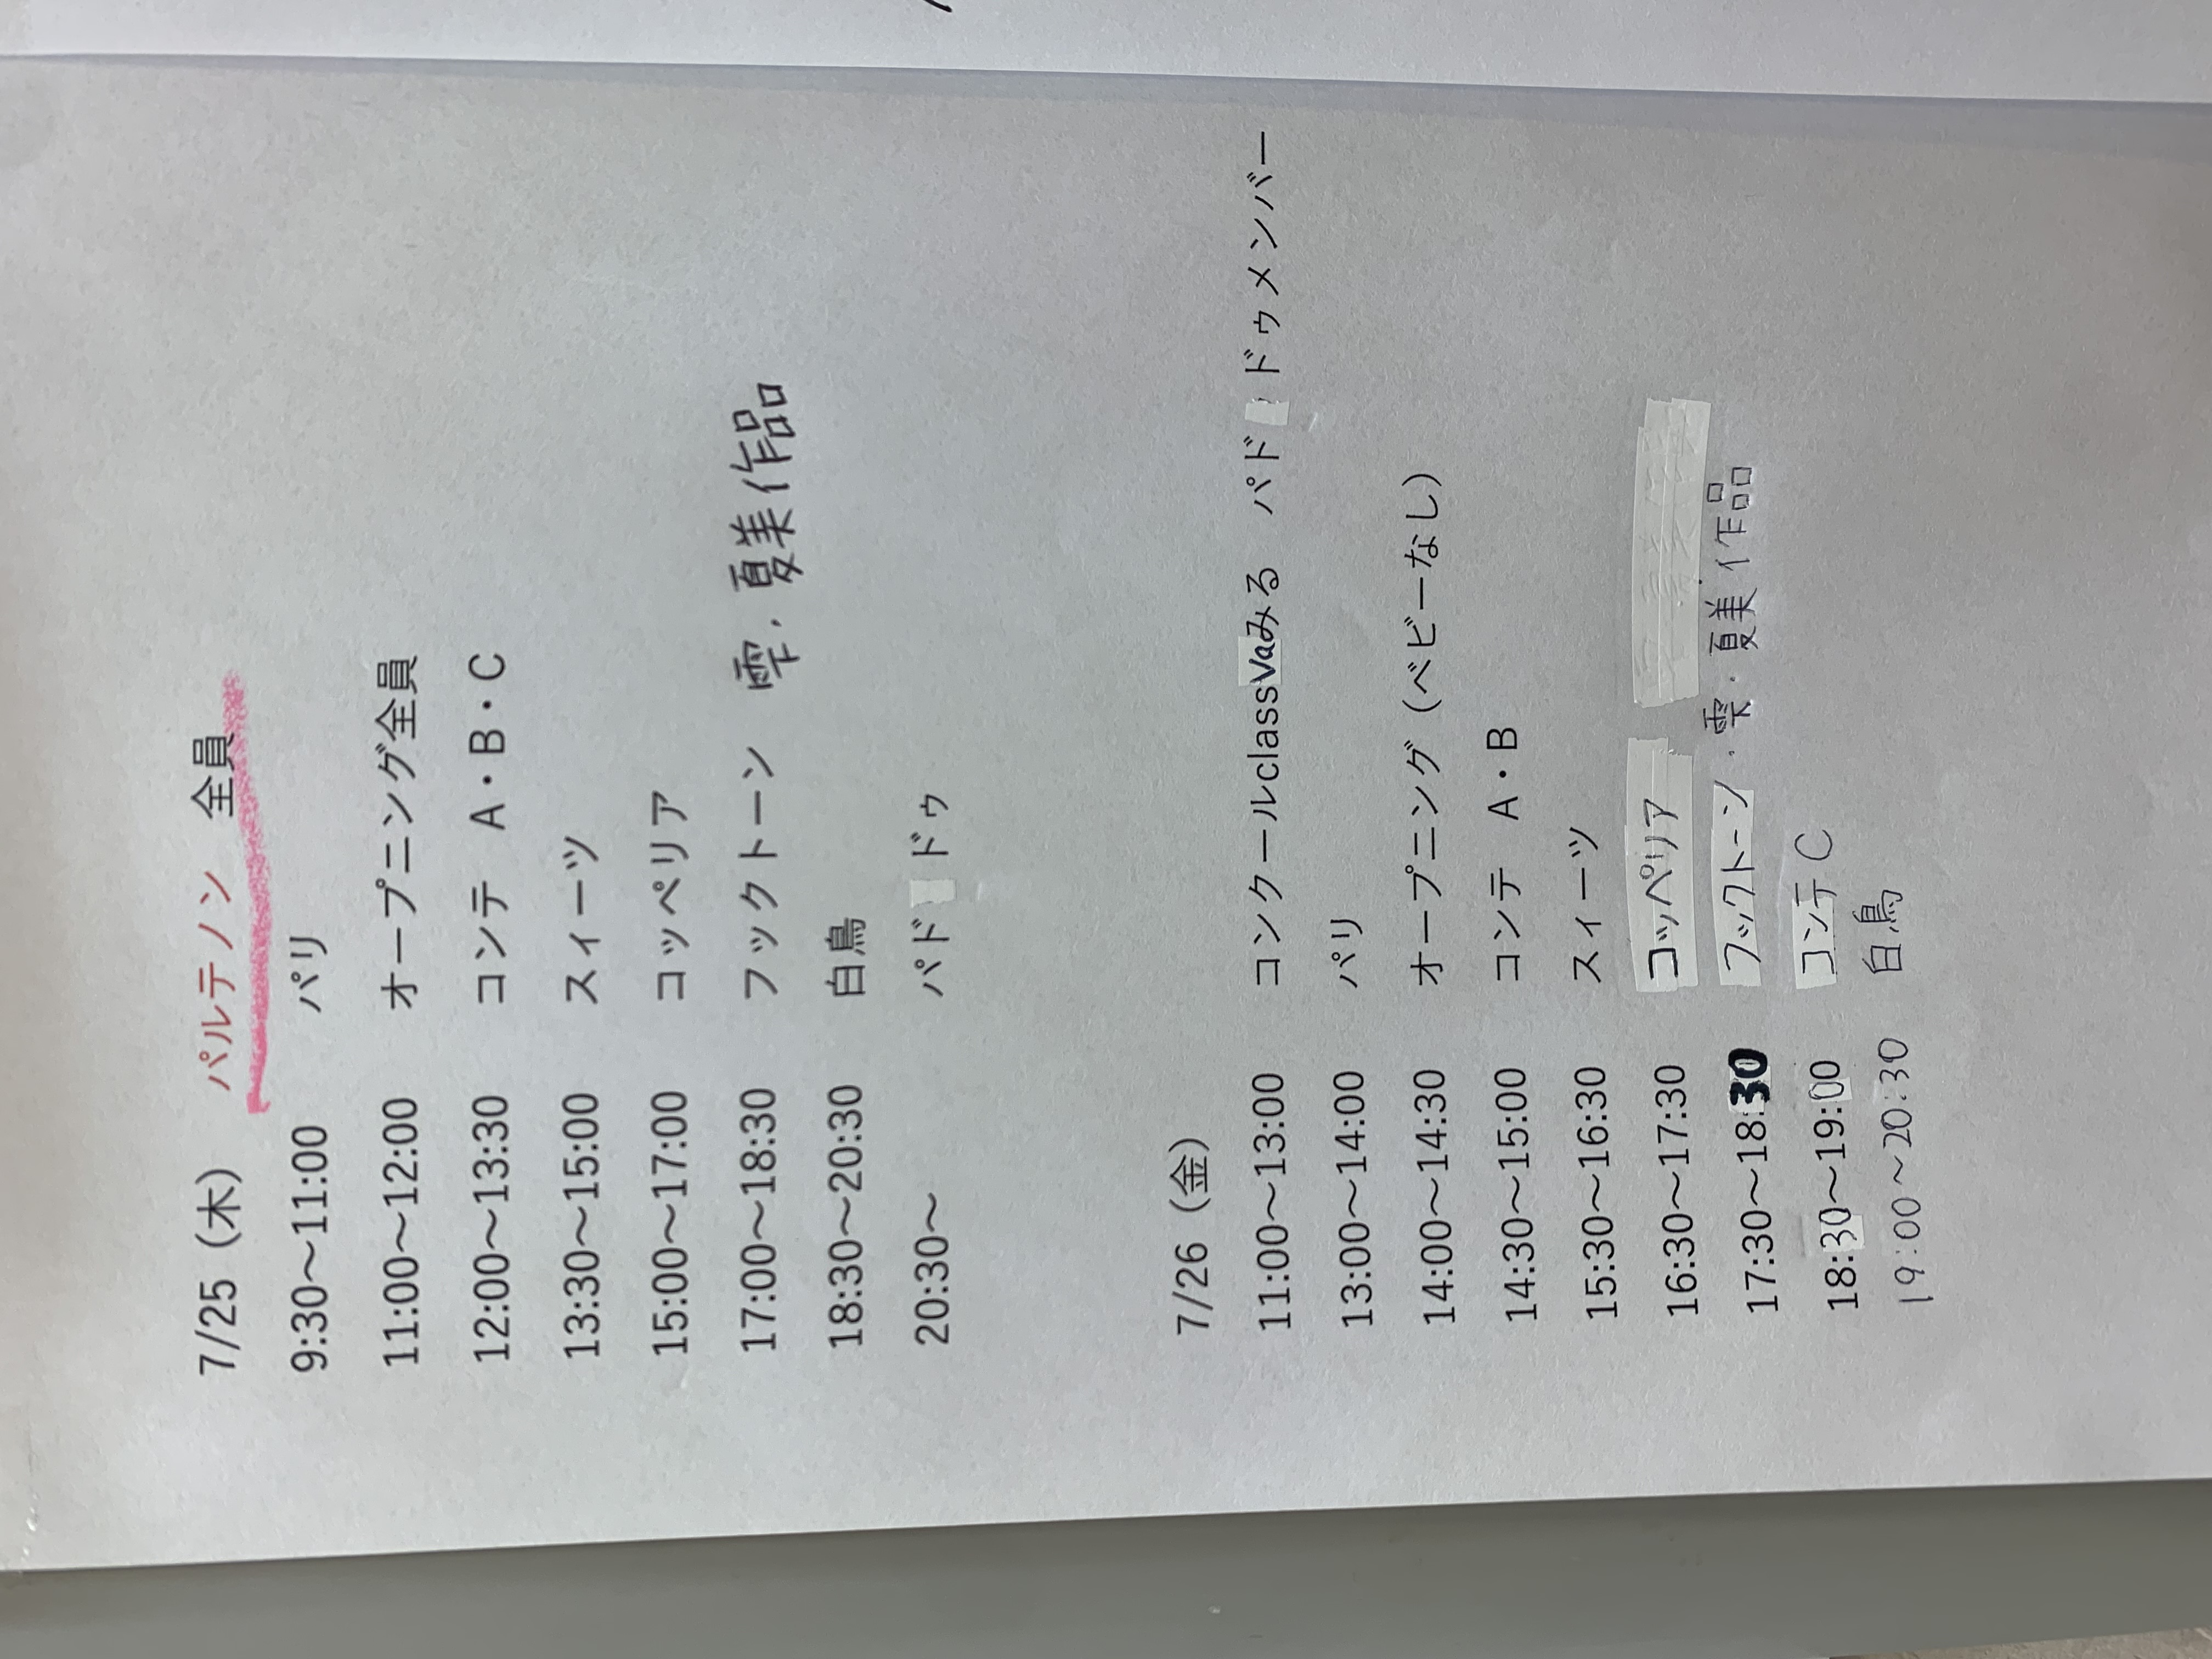 7/25（木） パルテノン 全員
9:30～11:00 パリ
11:00～12:00 オープニング全員
12:00～13:30 コンテ A・B・C
13:30～15:00 スィーツ
15:00～17:00 コッペリア
17:00～18:30 フックトーン 雫・夏美作品
18:30～20:30 白鳥
20:30～ パド ドゥ
7/26（金）
11:00～13:00 コンクールclassVaみる パド ドゥメンバー
13:00～14:00 パリ
14:00～14:30 オープニング（ベビーなし）
14:30～15:00 コンテ A・B
15:30～16:30 スィーツ
16:30～17:30 コッペリア
17:30～18:30 フックトーン・雫・夏美作品
18:30～19:00 コンテC
19:00～20:30 白鳥